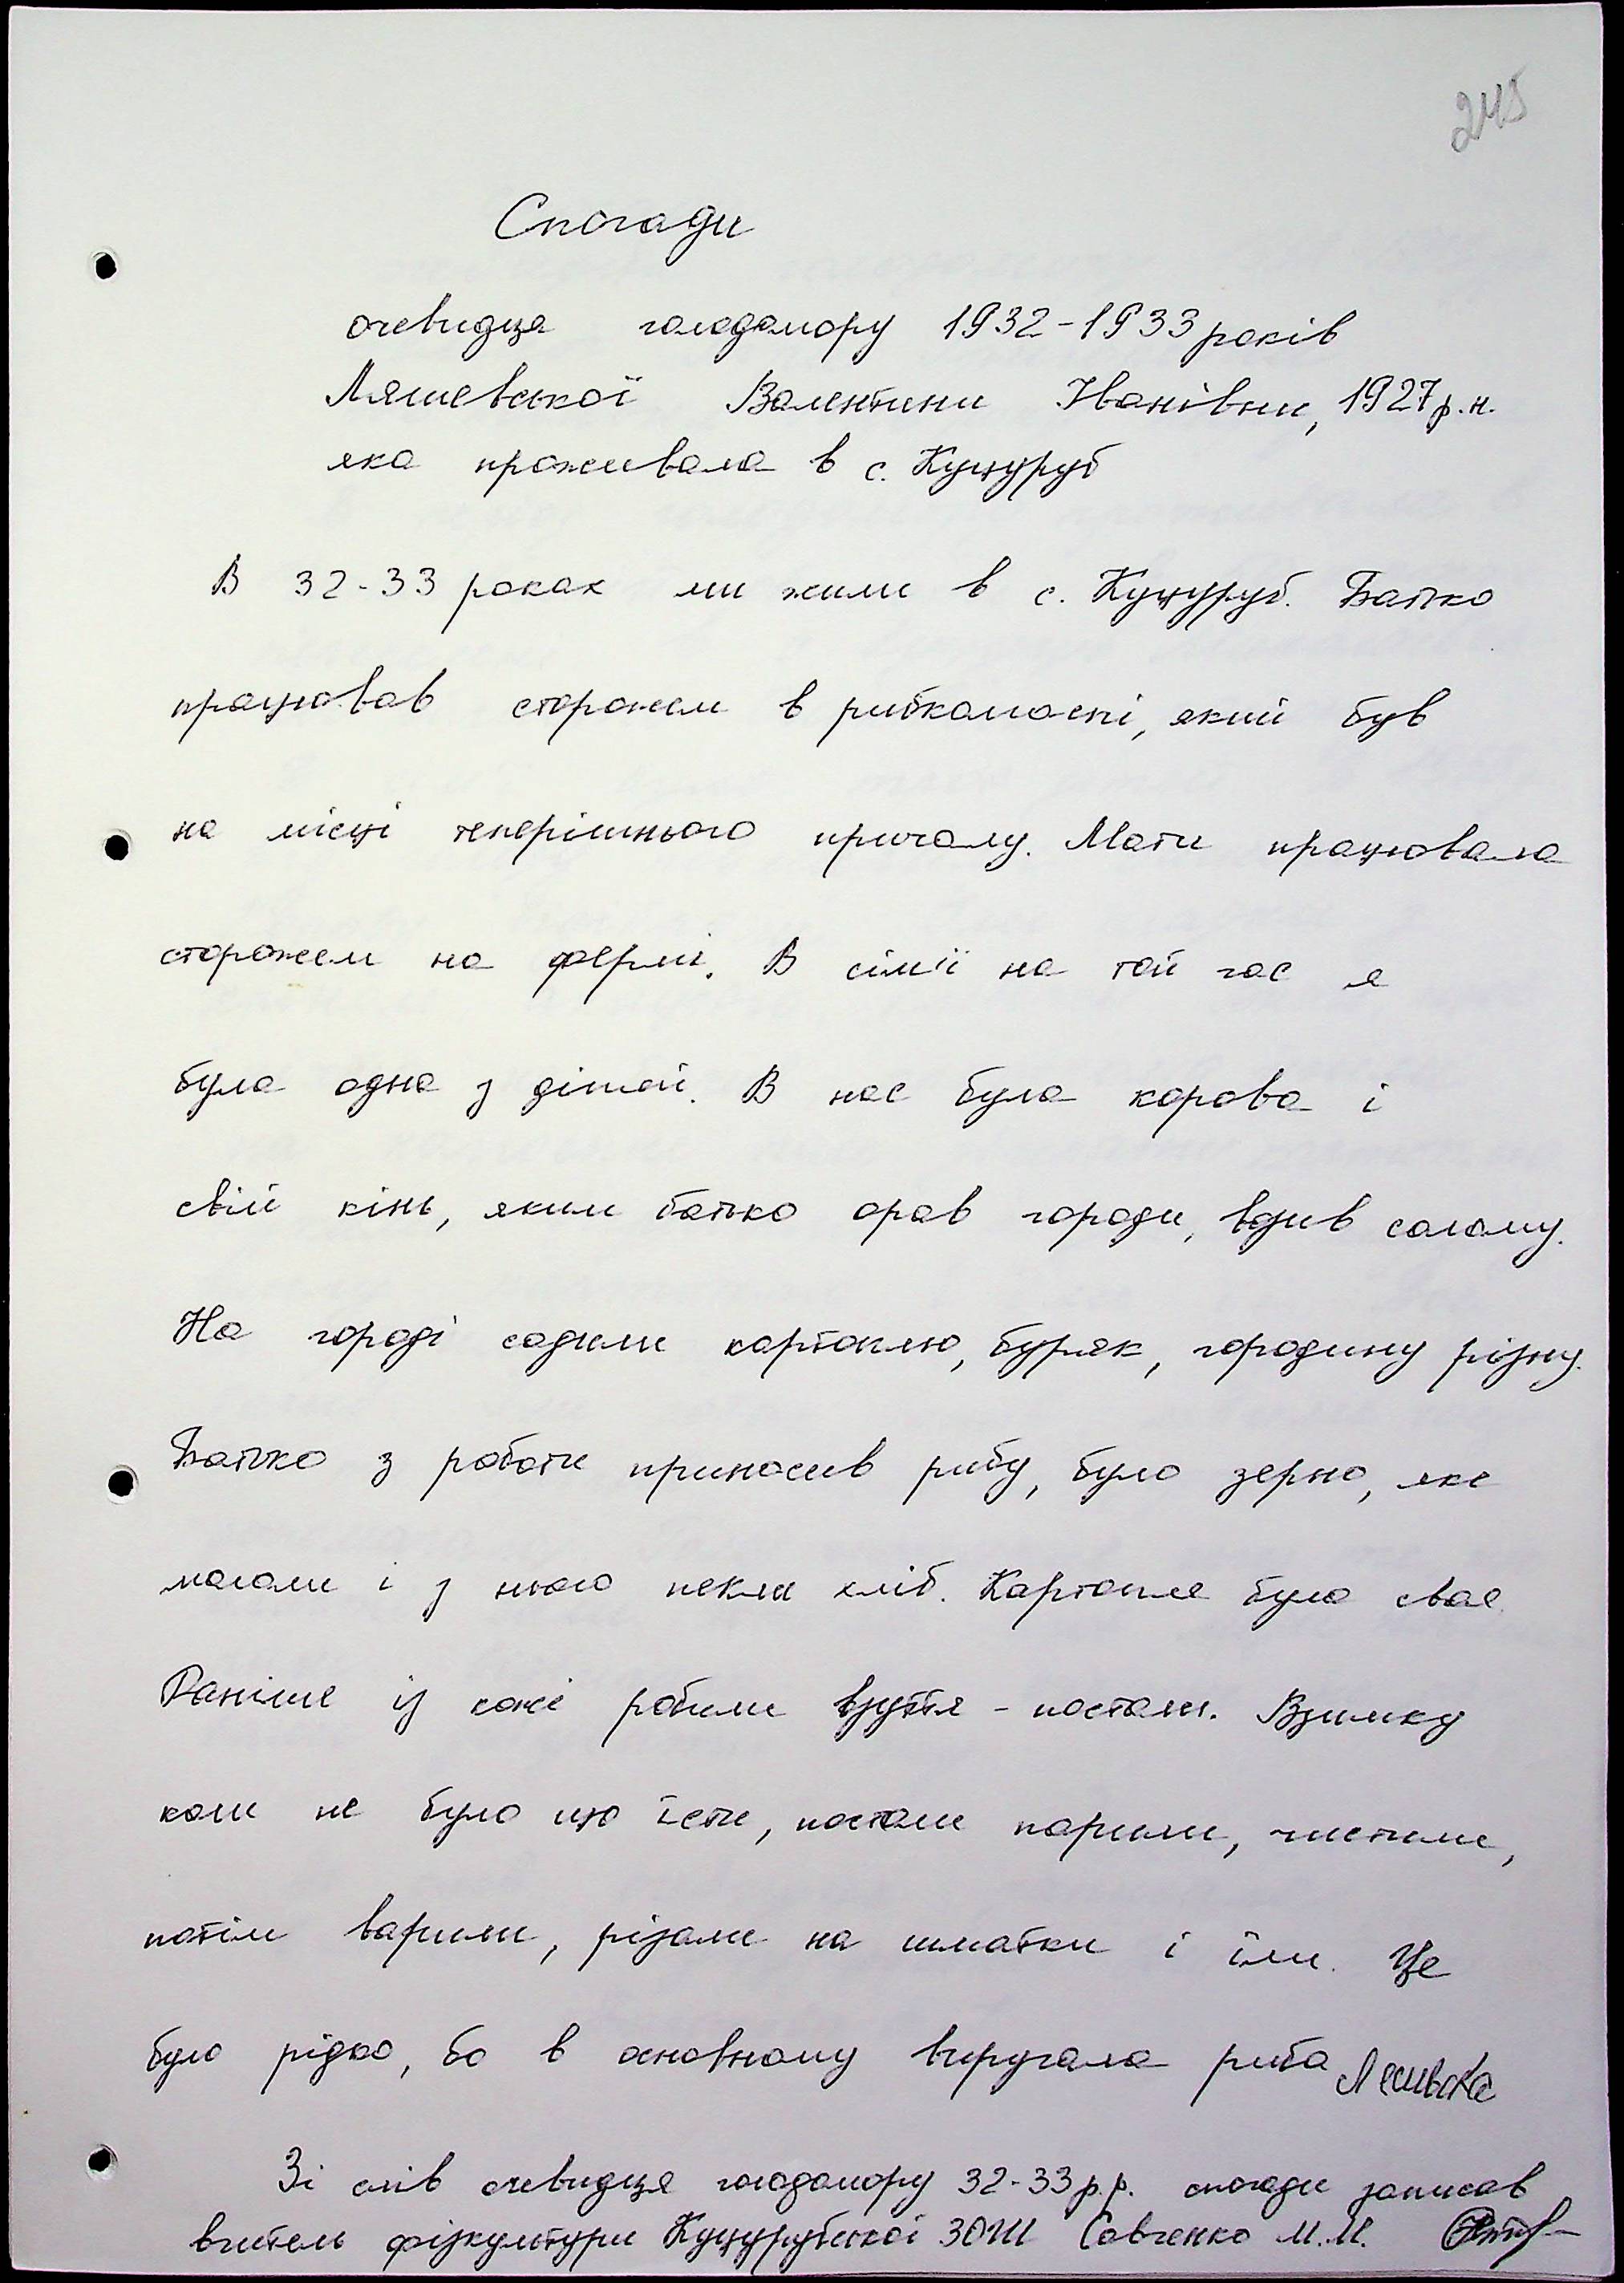 245
Спогади
очевидця голодомору 1932-1933 років
Ляшевської Валентини Іванівни, 1927 р.н.
яка проживала в с. Куцуруб
В 32-33 роках ми жили в с. Куцуруб. Батько
працював сторожем в рибколгоспі, який був
на місці теперішнього причалу. Мати працювала
сторожем на фермі. В сім'ї на той час я
була одна з дітей. В нас була корова і
свій кінь, яким батько орав городи, возив солому.
На городі садили картоплю, буряк, городину різну.
Батько з роботи приносив рибу, було зерно, яке
мололи і з нього пекли хліб. Картопля була своя.
Раніше із кожі робили взуття - постоли. Взимку
коли не було що їсти, постоли парили, чистили,
потім варили, різали на шматки і їли. Це
було рідко, бо в основному виручала риба
Зі слів очевидця голодомору 32-33 р.р. спогади записав
вчитель фізкультури Куцурубської ЗОШ Савченко М.М.